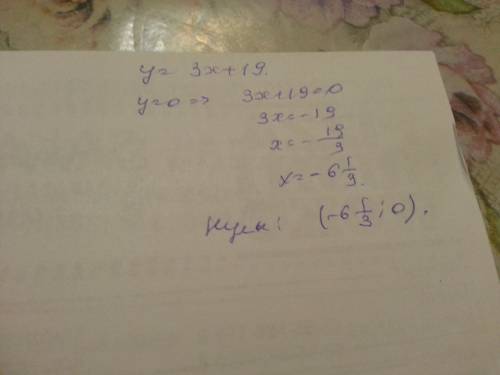 y = 3x+19.
y=0 => 3x+19=0
3x=-19
x=-19/3
x=-6 1/3.
Нули: (-6 1/3; 0).